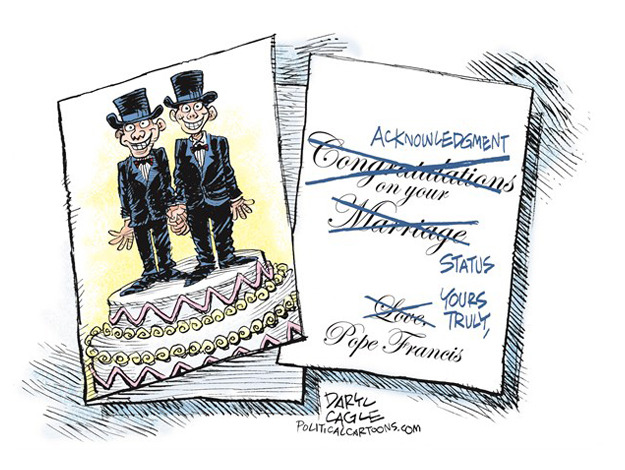 ACKNOWLEDGMENT
Congratulations
on your
Marriage
STATUS
Love, YOURS
TRULY,
Pope Francis
DARYL
CAGLE
POLITICALCARTOONS.COM